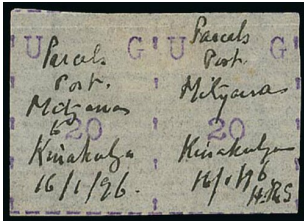 U G
Parcels
Post.
Mityana
to
20
Kinakulya
16/1/96.
U G
Parcels
Post
Mityana
20
Kinakulya
16/1/96
H.R.S